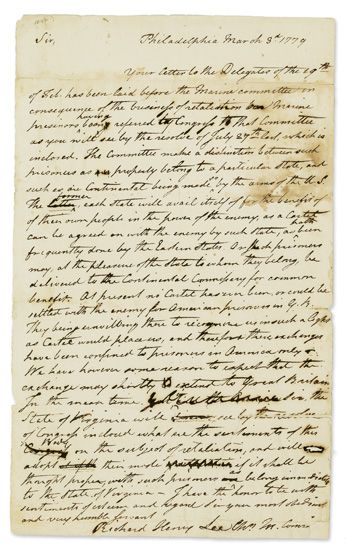 Sir,
Philadelphia March 3d. 1779
Your letter to the Delegates of the 19th
of Feb. has been laid before the Marine committee in
consequence of the business of retaliation Marine
having
prisoners being referred by Congress to that Committee
as you will see by the resolve of July 27th last, which is
inclosed. The Committee make a distinction between such
prisoners as properly belong to a particular State, and
such as are Continental being made by the arms of the U. S.
former
The each State will avail itself of for the benefit of
of their own people in the power of the enemy, as a Cartel
hath
can be agreed on with the enemy by such State, as been
frequently done by the Eastern States. Or such prisoners
may, at the pleasure of the State to whom they belong be
delivered to the Continental Commissary for common
benefit. At present no Cartel has been, or could be
settled with the enemy for American prisoners in G. B.
They being unwilling there to recognize us in such a light
as Cartel would place us, and therefore these exchanges
have been confined to prisoners in America only.
We have however some reason to expect that the
exchange may shortly extend to Great Britain
In the mean time Sir, the
State of Virginia will see by the Resolve
of Congress inclosed what are the sentiments of this
Body on the subject of retaliation, and will
adopt their mode if it shall be
thought proper, with such prisoners as belong immediately
to the State of Virginia - I have the honor to be with
sentiments of esteem and regard Sir your most obedient
and very humble servant
Richard Henry Lee Chn M. Comee